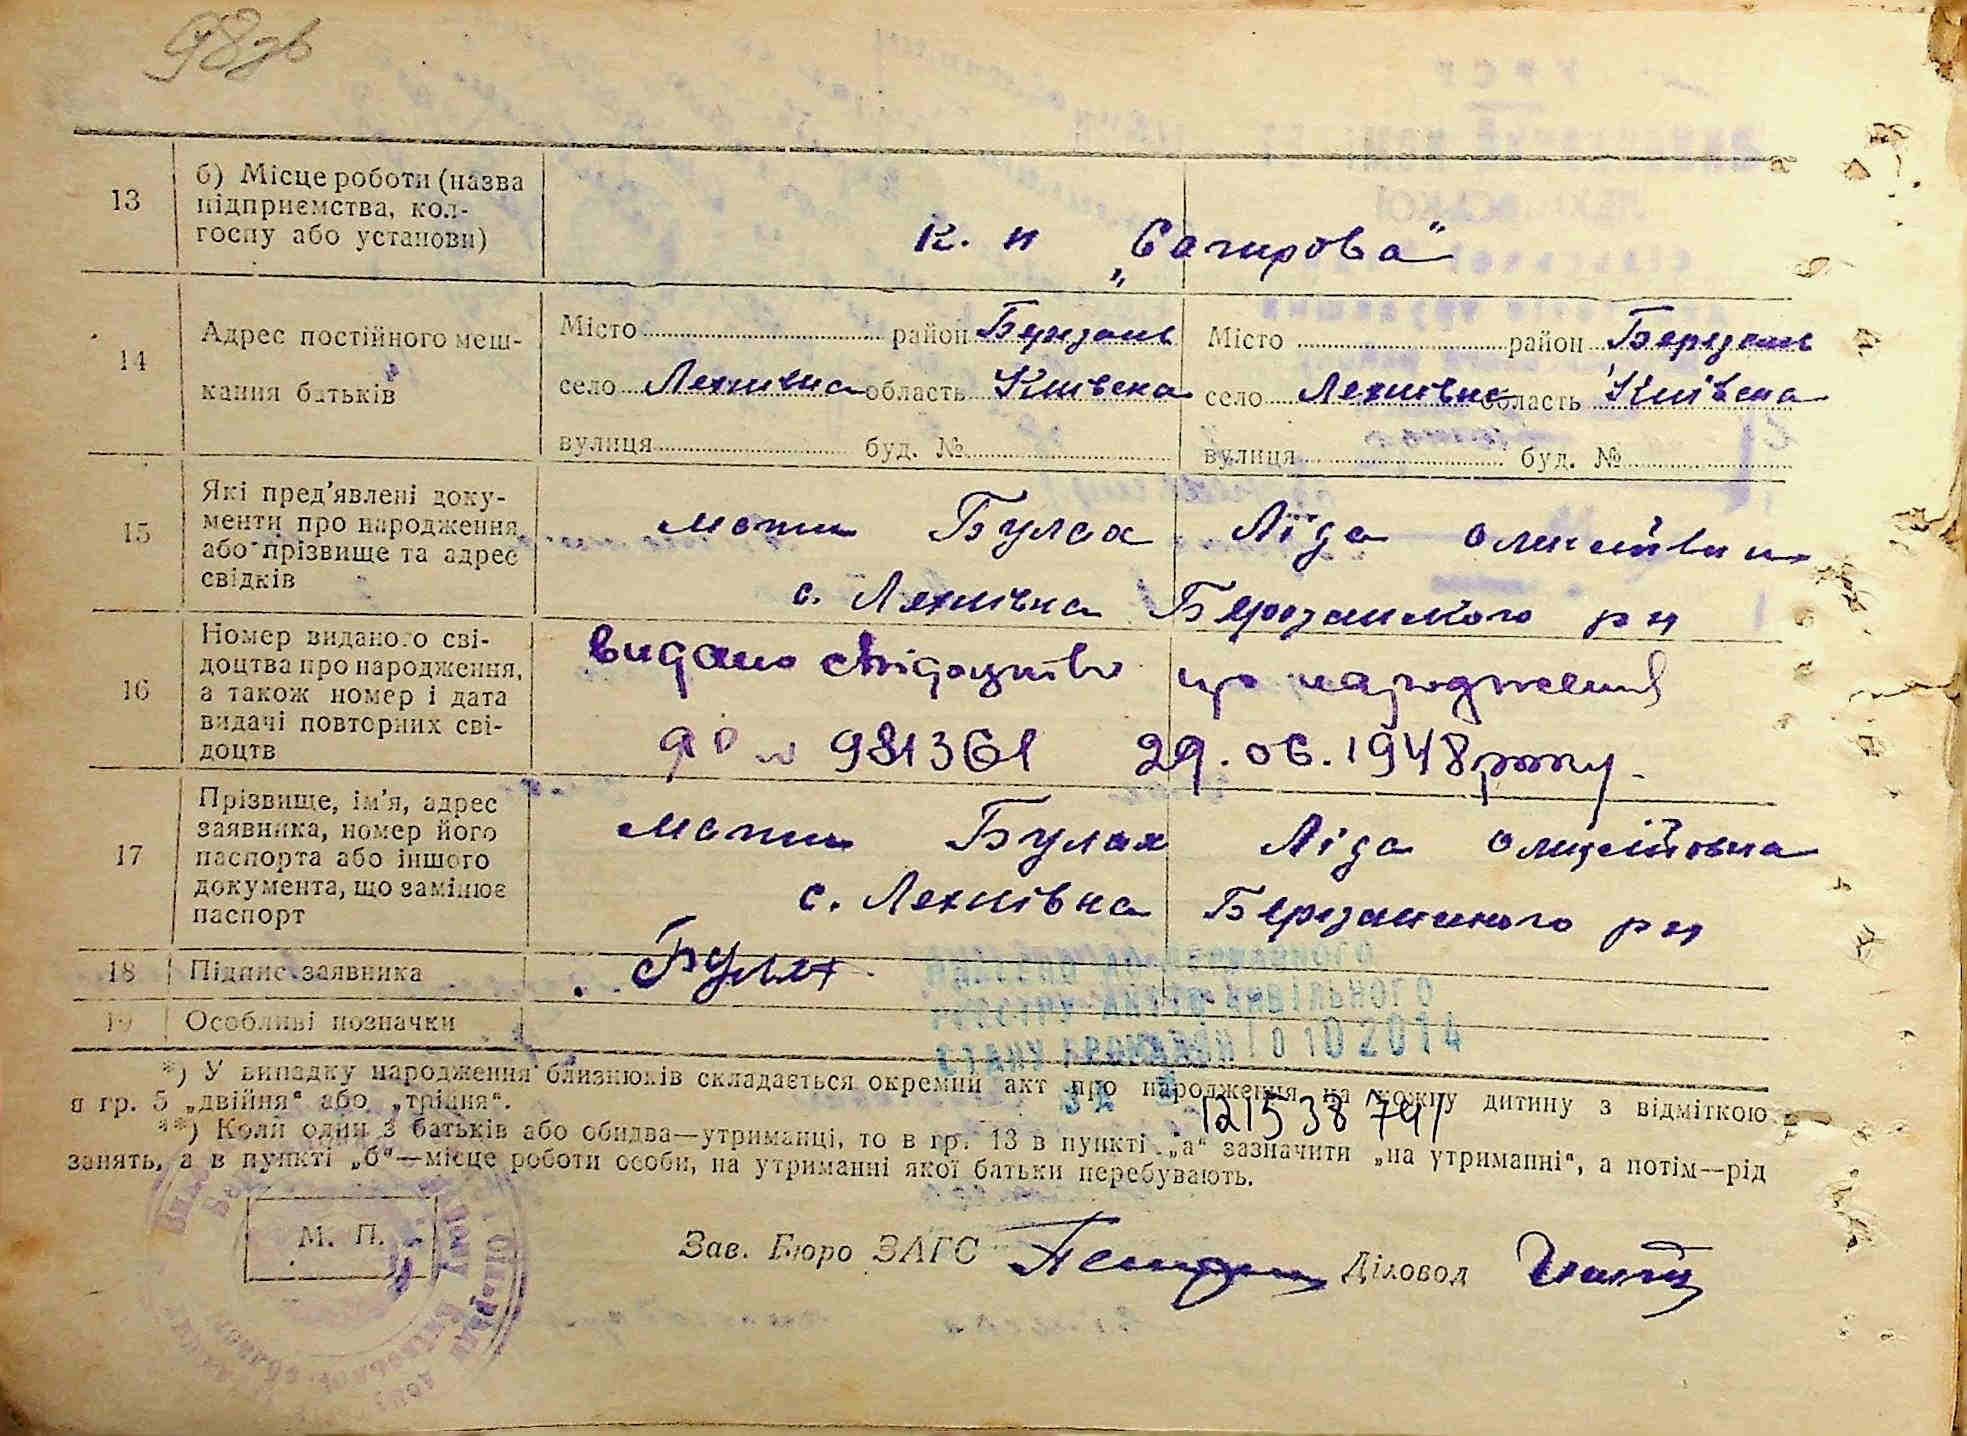 98зв
13 б) Місце роботи (назва підприємства, колгоспу або установи)
к. н „Сагирова"
14 Адрес постійного мешкання батьків
Місто район Березань Місто район Березань
село Лехнівка область Київська село Лехнівка область Київська
вулиця буд. № вулиця буд. №
15 Які пред'явлені документи про народження або прізвище та адрес свідків
мати Булах Ліда
с. Лехнівка Березанського рн
16 Номер виданого свідоцтва про народження, а також номер і дата видачі повторних свідоцтв
видано свідоцтво про народження
981361 29.06.1948 року.
17 Прізвище, ім'я, адрес заявника, номер його паспорта або іншого документа, що замінює паспорт
мати Булах Ліда
с. Лехнівка Березанського рн
18 Підпис заявника Булах
19 Особливі позначки
ВНЕСЕНО ДО ДЕРЖАВНОГО
РЕЄСТРУ АКТІВ ЦИВІЛЬНОГО
СТАНУ ГРОМАДЯН 10 10 2014
12153874
*) У випадку народження близнюків складається окремий акт про народження на кожну дитину з відміткою
в гр. 5 „двійня" або „трійня".
**) Коли один з батьків або обидва—утриманці, то в гр. 13 в пункті „а" зазначити „на утриманні", а потім—рід
занять, а в пункті „б"—місце роботи особи, на утриманні якої батьки перебувають.
М. П.
Зав. Бюро ЗАГС Діловод